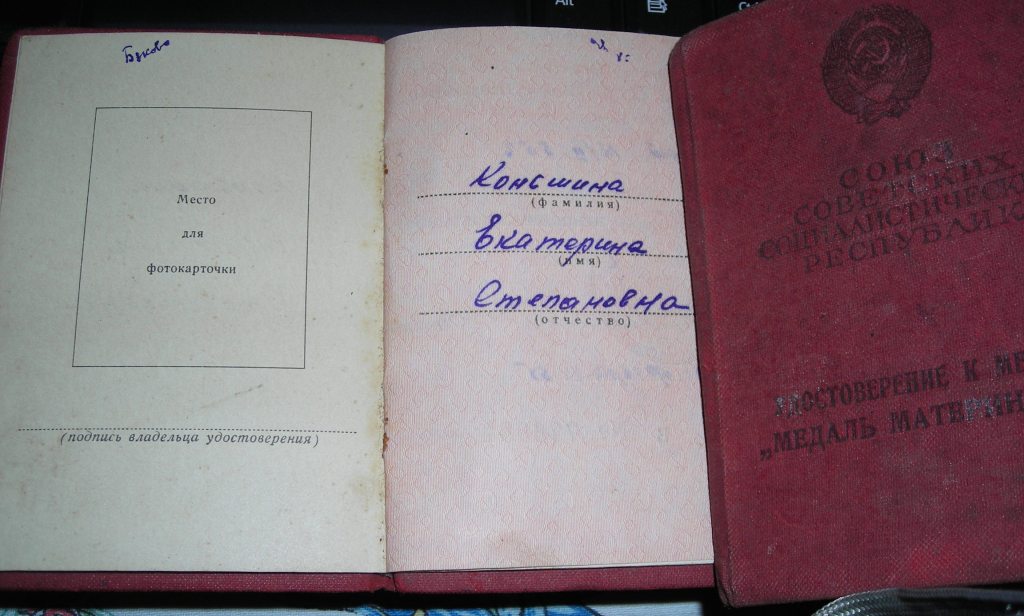 Alt
Место
для
фотокарточки
(подпись владельца удостоверения)
Коньшина
(фамилия)
Екатерина
(имя)
Степановна
(отчество)
СОЮЗ
СОВЕТСКИХ
СОЦИАЛИСТИЧЕСК
РЕСПУБЛИК
УДОСТОВЕРЕНИЕ К МЕ
„МЕДАЛЬ МАТЕРИН